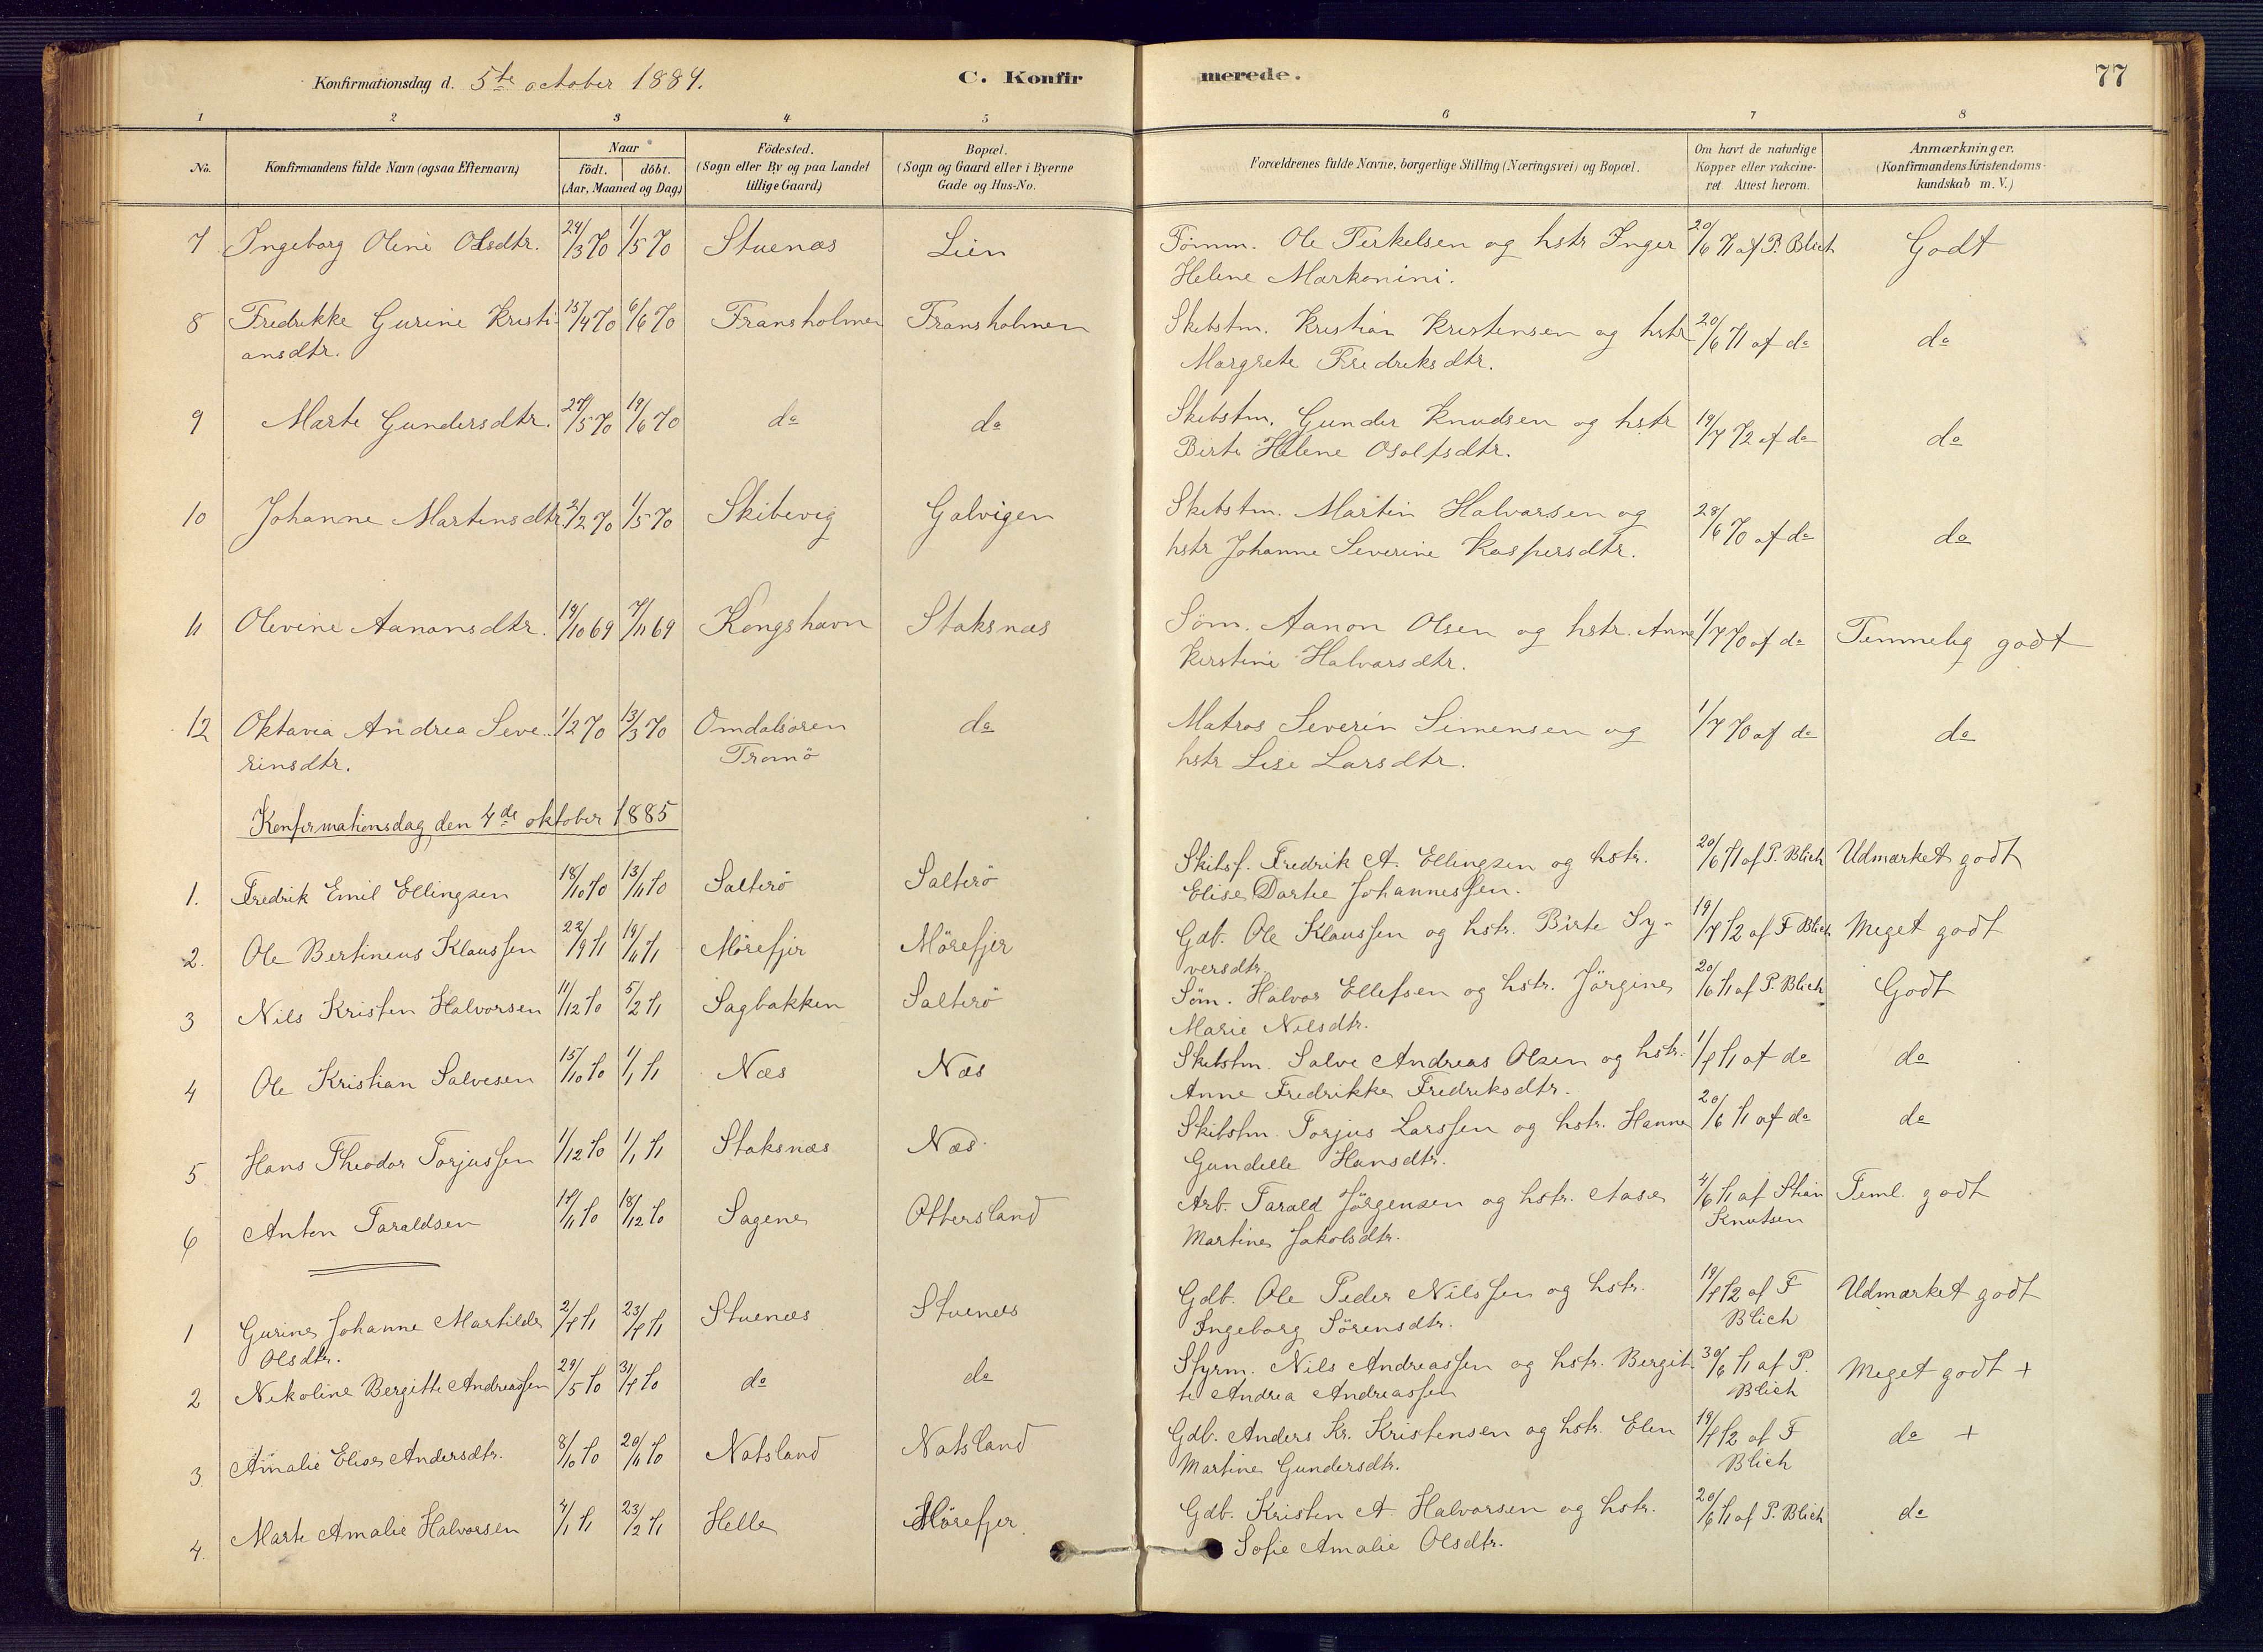 Konfirmationsdag d. 5te october 1884. C. Konfirmerede. 77
1 2 3 4 5 6 7 8
No. Konfirmandens fulde Navn (ogsaa Efternavn) Naar födt. döbt. (Aar, Maaned og Dag) Födested. (Sogn eller By og paa Landet tillige Gaard) Bopæl. (Sogn og Gaard eller i Byerne Gade og Hus-No. Forældrenes fulde Navne, borgerlige Stilling (Næringsvei) og Bopæl. Om havt de naturlige Kopper eller vakcineret. Attest herom. Anmærkninger. (Konfirmandens Kristendomskundskab m. V.)
7 Ingeborg Oline Olsdtr. 24/3 70 1/5 70 Stuenæs Lien Tömm. Ole Terkelsen og hstr Inger 20/6 71 af P. Blich Godt
Helene Markonini.
8 Fredrikke Gurine Kristi- 15/4 70 6/6 70 Fransholmen Fransholmen Skibstm. Kristian Kristensen og hstr 20/6 71 af do do
ansdtr. Margrete Fredriksdtr.
9 Marte Gundersdtr. 27/5 70 19/6 70 do do Skibstm. Gunder Knudsen og hstr 19/7 72 af do do
Birte Helene Osolfsdtr.
10 Johanne Martinsdtr. 2/2 70 1/5 70 Skibevig Galvigen Skibstm. Martin Halvarsen og 28/6 70 af do do
hstr Johanne Severine Kaspersdtr.
11 Olevine Aanonsdtr. 19/10 69 7/11 69 Kongshavn Staksnæs Söm. Aanon Olsen og hstr. Anne 1/7 70 af do Temmelig godt
Kirstine Halvarsdtr.
12 Oktavia Andrea Seve- 1/2 70 13/3 70 Omdalsören do Matros Severin Simensen og 1/7 70 af do do
rinsdtr. Tromö hstr Lise Larsdtr.
Konfirmationsdag den 4de oktober 1885
1. Fredrik Emil Ellingsen 18/10 70 13/11 70 Salterö Salterö Skibsf. Fredrik A. Ellingsen og hstr. 20/6 71 af P. Blich Udmærket godt
Elise Dorthe Johannessen.
2. Ole Bertineus Klaussen 22/9 71 19/11 71 Mörefjer Mörefjer Gdb. Ole Klaussen og hstr. Birte Sy- 19/7 72 af F Blich Meget godt
versdtr.
3 Nils Kristen Halvorsen 11/12 70 5/2 71 Sagbakken Salterö Söm. Halvor Ellefsen og hstr. Jörgine 20/6 71 af P. Blich Godt
Marie Nilsdtr.
4 Ole Kristian Salvesen 15/10 70 1/1 71 Næs Næs Skibstm. Salve Andreas Olsen og hstr. 1/7 71 af do do
Anne Fredrikke Fredriksdtr.
5 Hans Theodor Torjussen 1/12 70 1/1 71 Staksnæs Næs Skibstm. Torjus Larssen og hstr. Hanne 20/6 71 af do do
Gundelle Hansdtr.
6 Anton Taraldsen 17/11 70 18/12 70 Sagene Ottersland Arb. Tarald Jörgensen og hstr. Aase 4/6 71 af Stian Teml. godt
Martine Jakobsdtr. Knutsen
1 Gurine Johanne Martilde 2/7 71 23/7 71 Stuenæs Stuenæs Gdb. Ole Peder Nilssen og hstr. 19/7 72 af F Udmærket godt
Olsdtr. Ingeborg Sörensdtr. Blich
2 Nikoline Bergitte Andreassen 29/5 70 31/7 70 do do Styrm. Nils Andreassen og hstr. Bergit- 30/6 71 af P. Meget godt +
te Andrea Andreassen Blich
3 Amalie Elise Andersdtr. 8/10 70 20/11 70 Natsland Natsland Gdb. Anders Kr. Kristensen og hstr. Elen 19/7 72 af F do +
Martine Gundersdtr. Blich
4. Marte Amalie Halvorsen 4/1 71 23/2 71 Helle Mörefjer Gdb. Kristen A. Halvorsen og hstr. 20/6 71 af P. Blich do
Sofie Amalie Olsdtr.